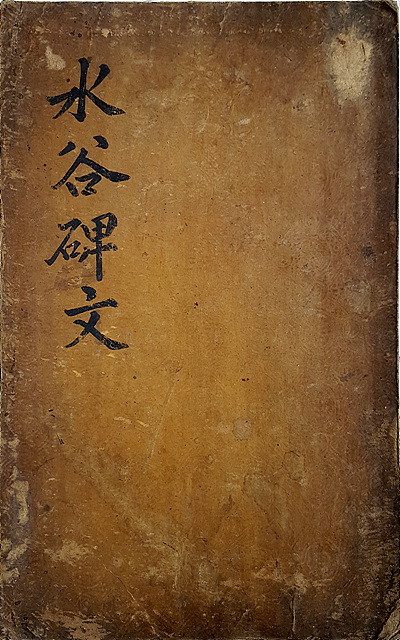 水谷碑文